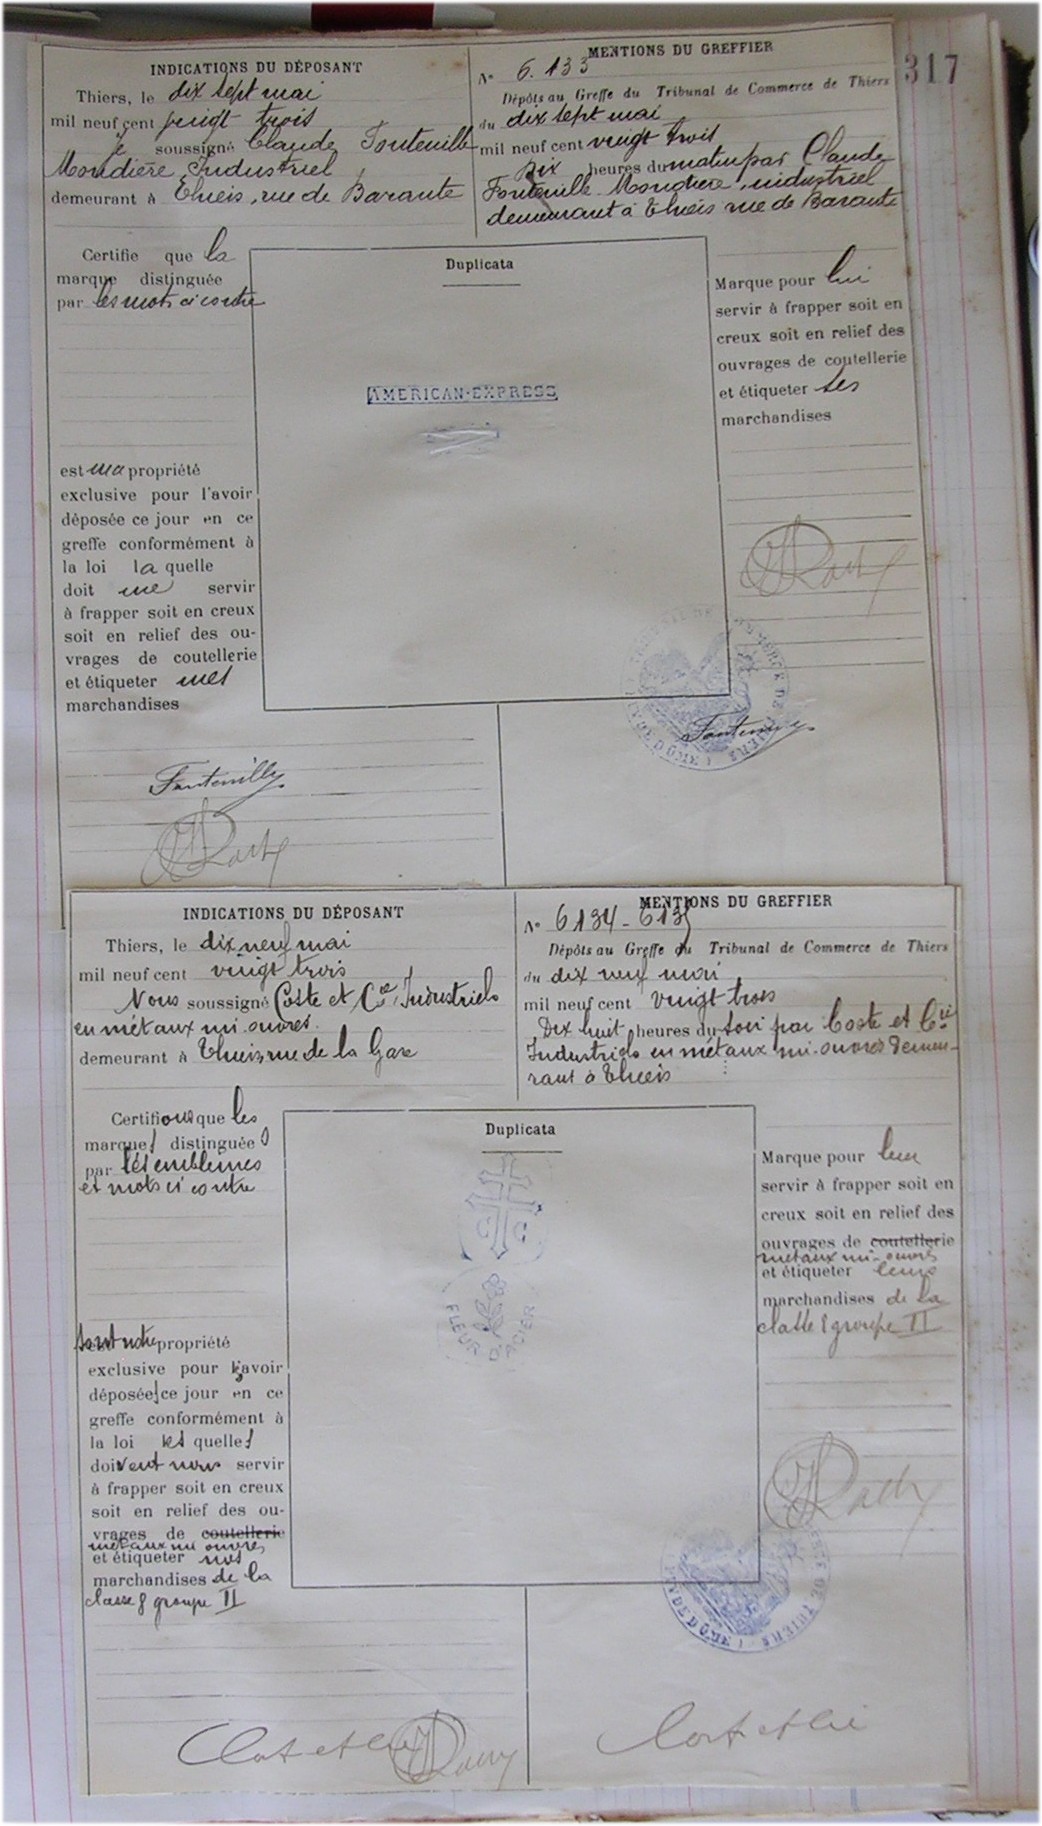 317
INDICATIONS DU DÉPOSANT
Thiers, le dix sept mai
mil neuf cent vingt trois
je soussigné Claude Fontenille
Mondière, Industriel
demeurant à Thiers, rue de Barante
MENTIONS DU GREFFIER
N° 6.133
Dépôts au Greffe du Tribunal de Commerce de Thiers
du dix sept mai
mil neuf cent vingt trois
Dix heures du matin par Claude
Fontenille Mondière, industriel
demeurant à Thiers rue de Barante
Certifie que la
marque distinguée
par les mots ci contre
est ma propriété
exclusive pour l'avoir
déposée ce jour en ce
greffe conformément à
la loi la quelle
doit me servir
à frapper soit en creux
soit en relief des ou-
vrages de coutellerie
et étiqueter mes
marchandises
Fontenille
Duplicata
AMERICAN-EXPRESS
Marque pour lui
servir à frapper soit en
creux soit en relief des
ouvrages de coutellerie
et étiqueter ses
marchandises
TRIBUNAL DE COMMERCE DE THIERS (PUY DE DÔME)
Fontenille
INDICATIONS DU DÉPOSANT
Thiers, le dix neuf mai
mil neuf cent vingt trois
Nous soussigné Coste et Cie Industriels
en métaux mi-ouvrés
demeurant à Thiers rue de la Gare
MENTIONS DU GREFFIER
N° 6134-6135
Dépôts au Greffe du Tribunal de Commerce de Thiers
du dix neuf mai
mil neuf cent vingt trois
Dix huit heures du soir par Coste et Cie
Industriels en métaux mi-ouvrés demeu-
rant à Thiers
Certifions que les
marques distinguées
par les emblèmes
et mots ci contre
sont notre propriété
exclusive pour les avoir
déposées ce jour en ce
greffe conformément à
la loi les quelles
doivent nous servir
à frapper soit en creux
soit en relief des ou-
vrages de coutellerie
métaux mi ouvrés
et étiqueter nos
marchandises de la
classe 8 groupe II
Coste et Cie
Duplicata
C C
FLEUR D'ACIER
Marque pour leur
servir à frapper soit en
creux soit en relief des
ouvrages de coutellerie
métaux mi-ouvrés
et étiqueter leurs
marchandises de la
classe 8 groupe II
PUY DE DÔME
DE THIERS
Coste et Cie